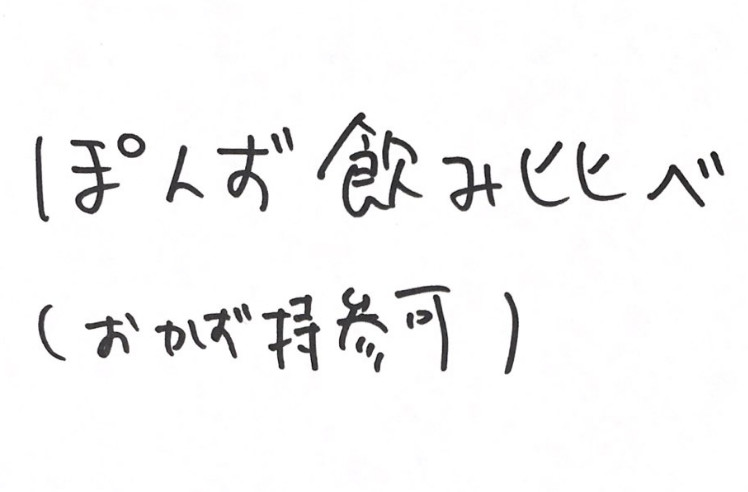 ぽんず飲み比べ
(おかず持参可)